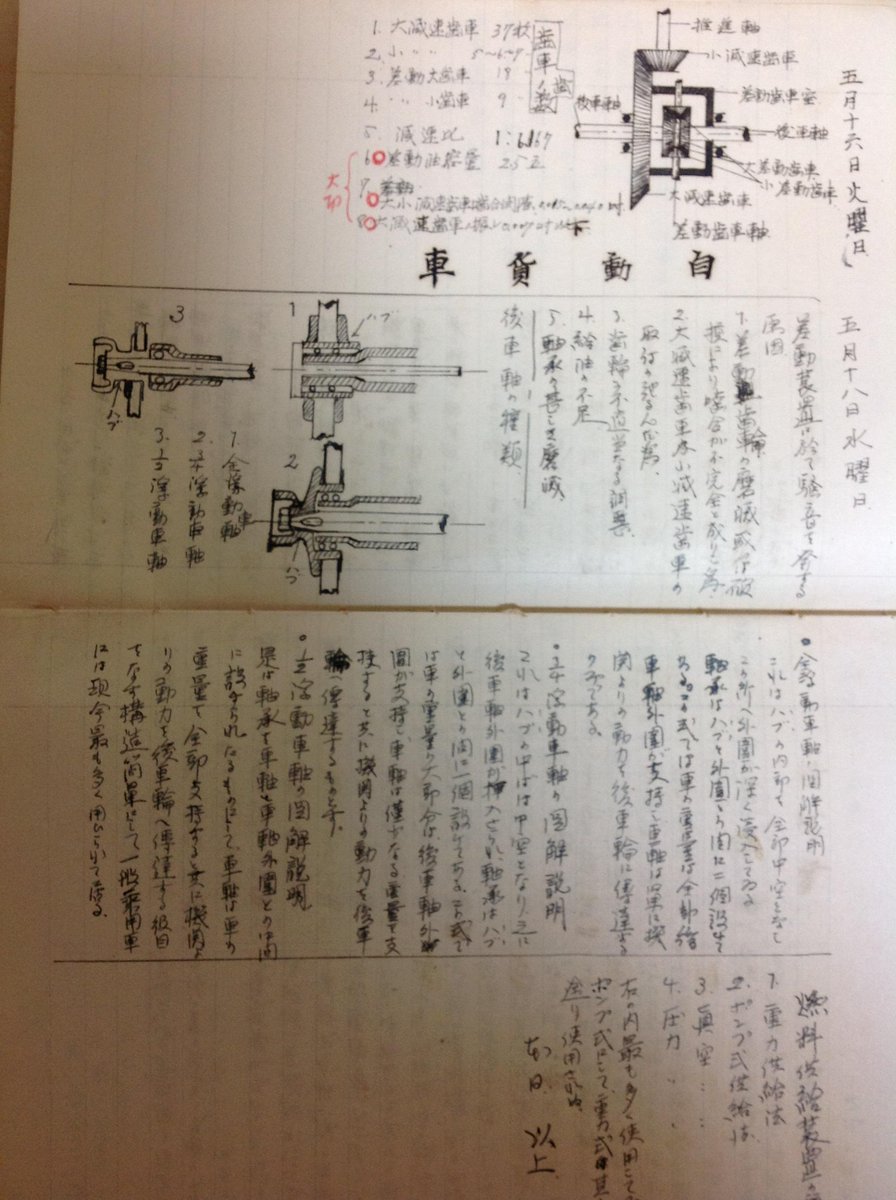 五月十六日火曜日
1. 大減速歯車 37枚
2. 小〃〃
3. 差動大歯車 18
4. 〃 小歯車 9
歯車ノ歯数
5. 減速比 1:6.167
6. 差動油容量 2.5立
7.
大小減速歯車噛合間隙
8. 大減速歯車ノ振レ
大切
推進軸
小減速歯車
差動歯車室
後車軸
後車軸
大差動歯車
小差動歯車
大減速歯車
差動歯車軸
自動貨車
五月十八日水曜日
差動装置に於て騒音を発する
原因
1. 差動歯輪の磨滅或は破
損により噛合が不完全と成りし為
2. 大減速歯車及小減速歯車の
取付の
3. 歯輪の不適当なる調整
4. 給油の不足
5. 軸承の甚しき磨滅
後車軸の種類
1. 全浮動車軸
2. 3/4浮動車軸
3. 1/2浮動車軸
1
ハブ
2
ハブ
3
ハブ
全浮動車軸の図解説明
これはハブの内部を全部中空となし
この所へ外囲が深く侵入してゐる
軸承はハブと外囲との間に二個設けて
ある。この式では車の重量は全部後
車軸外囲が支持し車軸は単に機
関よりの動力を後車輪に傳達する
のみである。
3/4浮動車軸の図解説明
これはハブの半ばは中空となり之に
後車軸外囲が挿入され、軸承はハブ
と外囲との間に一個設けてある。この式で
は車の重量の大部分は、後車軸外
囲が支持し、車軸は僅少なる重量を支
持すると共に機関よりの動力を後車
輪へ傳達するものとす。
1/2浮動車軸の図解説明
是は軸承を車軸と車軸外囲との間
に設けられたるものにして、車軸は車の
重量を全部支持すると共に機関よ
りの動力を後車輪へ傳達する役目
をなす構造簡単にして一般乗用車
には現今最も多く用ひられて居る。
燃料供給装置
1. 重力供給法
2. ポンプ式供給法
3. 真空〃〃
4. 圧力〃〃
右の内最も多く使用
ポンプ式にして、重力式は
余り使用されぬ。
本日 以上